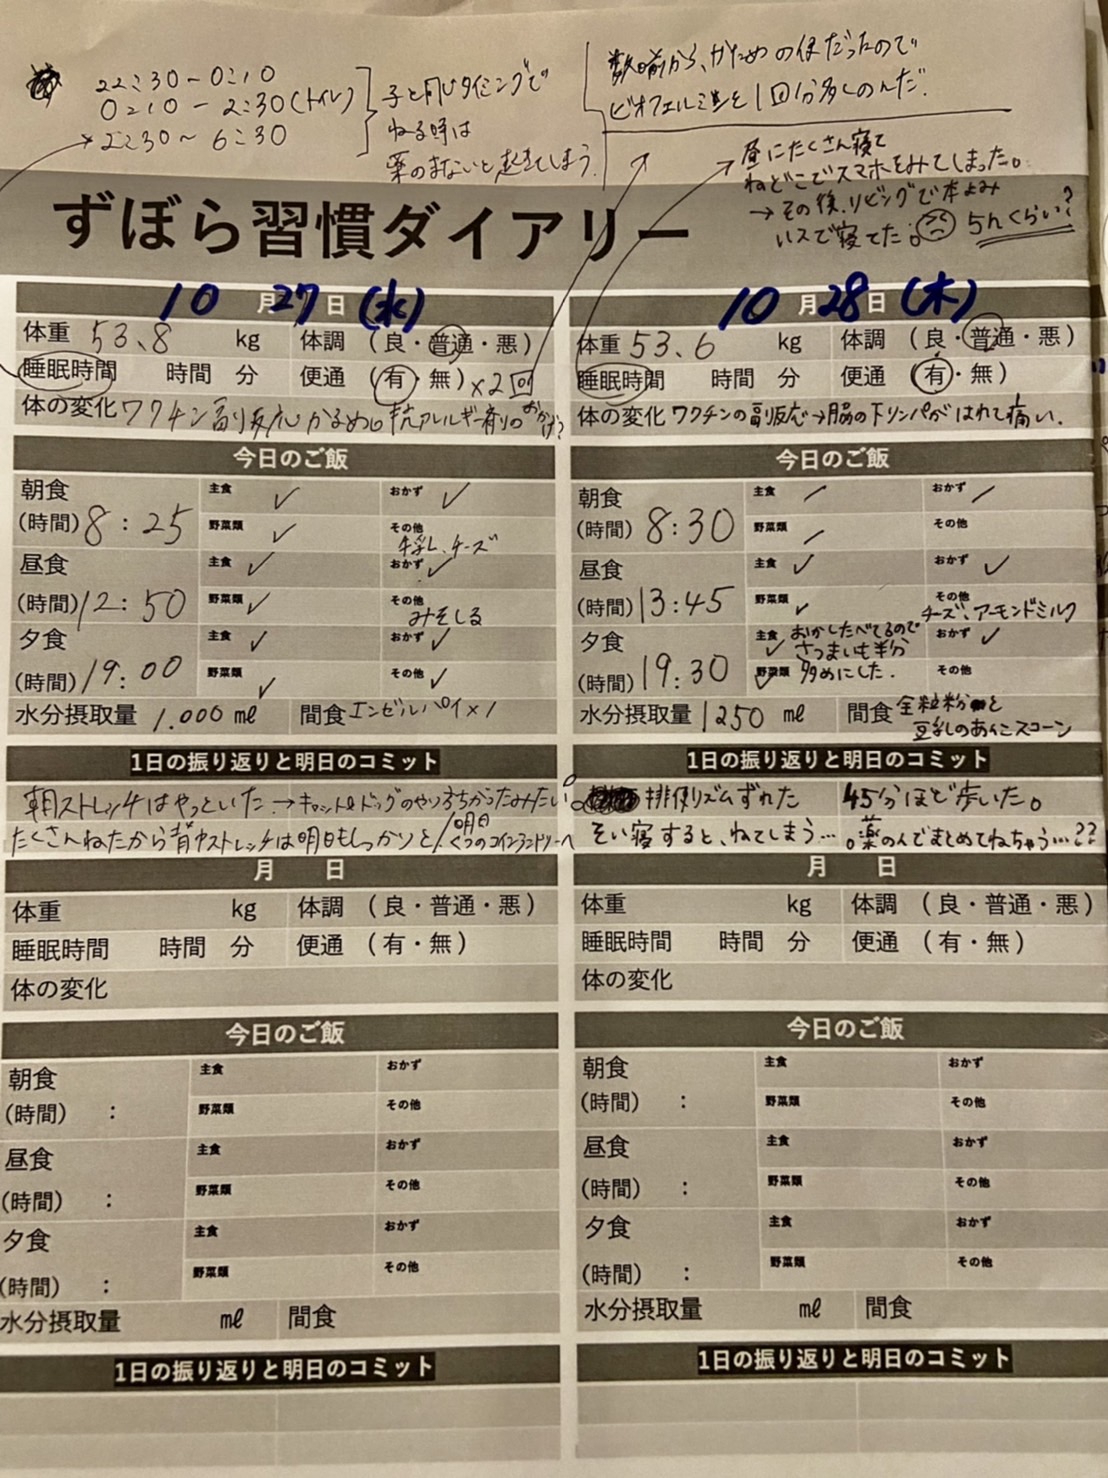 22:30〜0:10
0:10-2:30(トイレ)
2:30〜6:30
子と同じタイミングで
ねる時は
薬のまないと起きてしまう。
数日前から、かための便だったので
ビオフェルミンを1回分多くのんだ。
昼にたくさん寝て
ねどこでスマホをみてしまった。
→その後、リビングで本よみ
いスで寝てた。 5hくらい?
ずぼら習慣ダイアリー
10月27日(水)
体重 53.8 kg 体調 (良・普通・悪)
睡眠時間 時間 分 便通 (有・無)×2回
体の変化 ワクチン副反応かるめ。抗アレルギー剤のおかげ?
今日のご飯
朝食 主食 ✓ おかず ✓
(時間) 8:25 野菜類 ✓ その他 牛乳、チーズ
昼食 主食 ✓ おかず ✓
(時間) 12:50 野菜類 ✓ その他 みそしる
夕食 主食 ✓ おかず ✓
(時間) 19:00 野菜類 ✓ その他 ✓
水分摂取量 1.000 ml 間食 エンゼルパイ×1
1日の振り返りと明日のコミット
朝ストレッチはやっといた→キャット&ドッグのやり方ちがったみたい。
たくさんねたから背中ストレッチは明日もしっかりと/明日くつのコインランドリーへ
10月28日(木)
体重 53.6 kg 体調 (良・普通・悪)
睡眠時間 時間 分 便通 (有・無)
体の変化 ワクチンの副反応→脇の下リンパがはれて痛い.
今日のご飯
朝食 主食 おかず
(時間) 8:30 野菜類 その他
昼食 主食 ✓ おかず ✓
(時間) 13:45 野菜類 ✓ その他 チーズ、アーモンドミルク
夕食 主食 ✓ おかしたべてるので さつまいも半分 おかず ✓
(時間) 19:30 野菜類 ✓ 多めにした. その他
水分摂取量 1250 ml 間食 全粒粉と
豆乳のあんこスコーン
1日の振り返りと明日のコミット
排便リズムずれた 45分ほど歩いた。
そい寝すると、ねてしまう… 薬のんでまとめてねちゃう…??
月 日
体重 kg 体調 (良・普通・悪)
睡眠時間 時間 分 便通 (有・無)
体の変化
今日のご飯
朝食 主食 おかず
(時間) : 野菜類 その他
昼食 主食 おかず
(時間) : 野菜類 その他
夕食 主食 おかず
(時間) : 野菜類 その他
水分摂取量 ml 間食
1日の振り返りと明日のコミット
月 日
体重 kg 体調 (良・普通・悪)
睡眠時間 時間 分 便通 (有・無)
体の変化
今日のご飯
朝食 主食 おかず
(時間) : 野菜類 その他
昼食 主食 おかず
(時間) : 野菜類 その他
夕食 主食 おかず
(時間) : 野菜類 その他
水分摂取量 ml 間食
1日の振り返りと明日のコミット